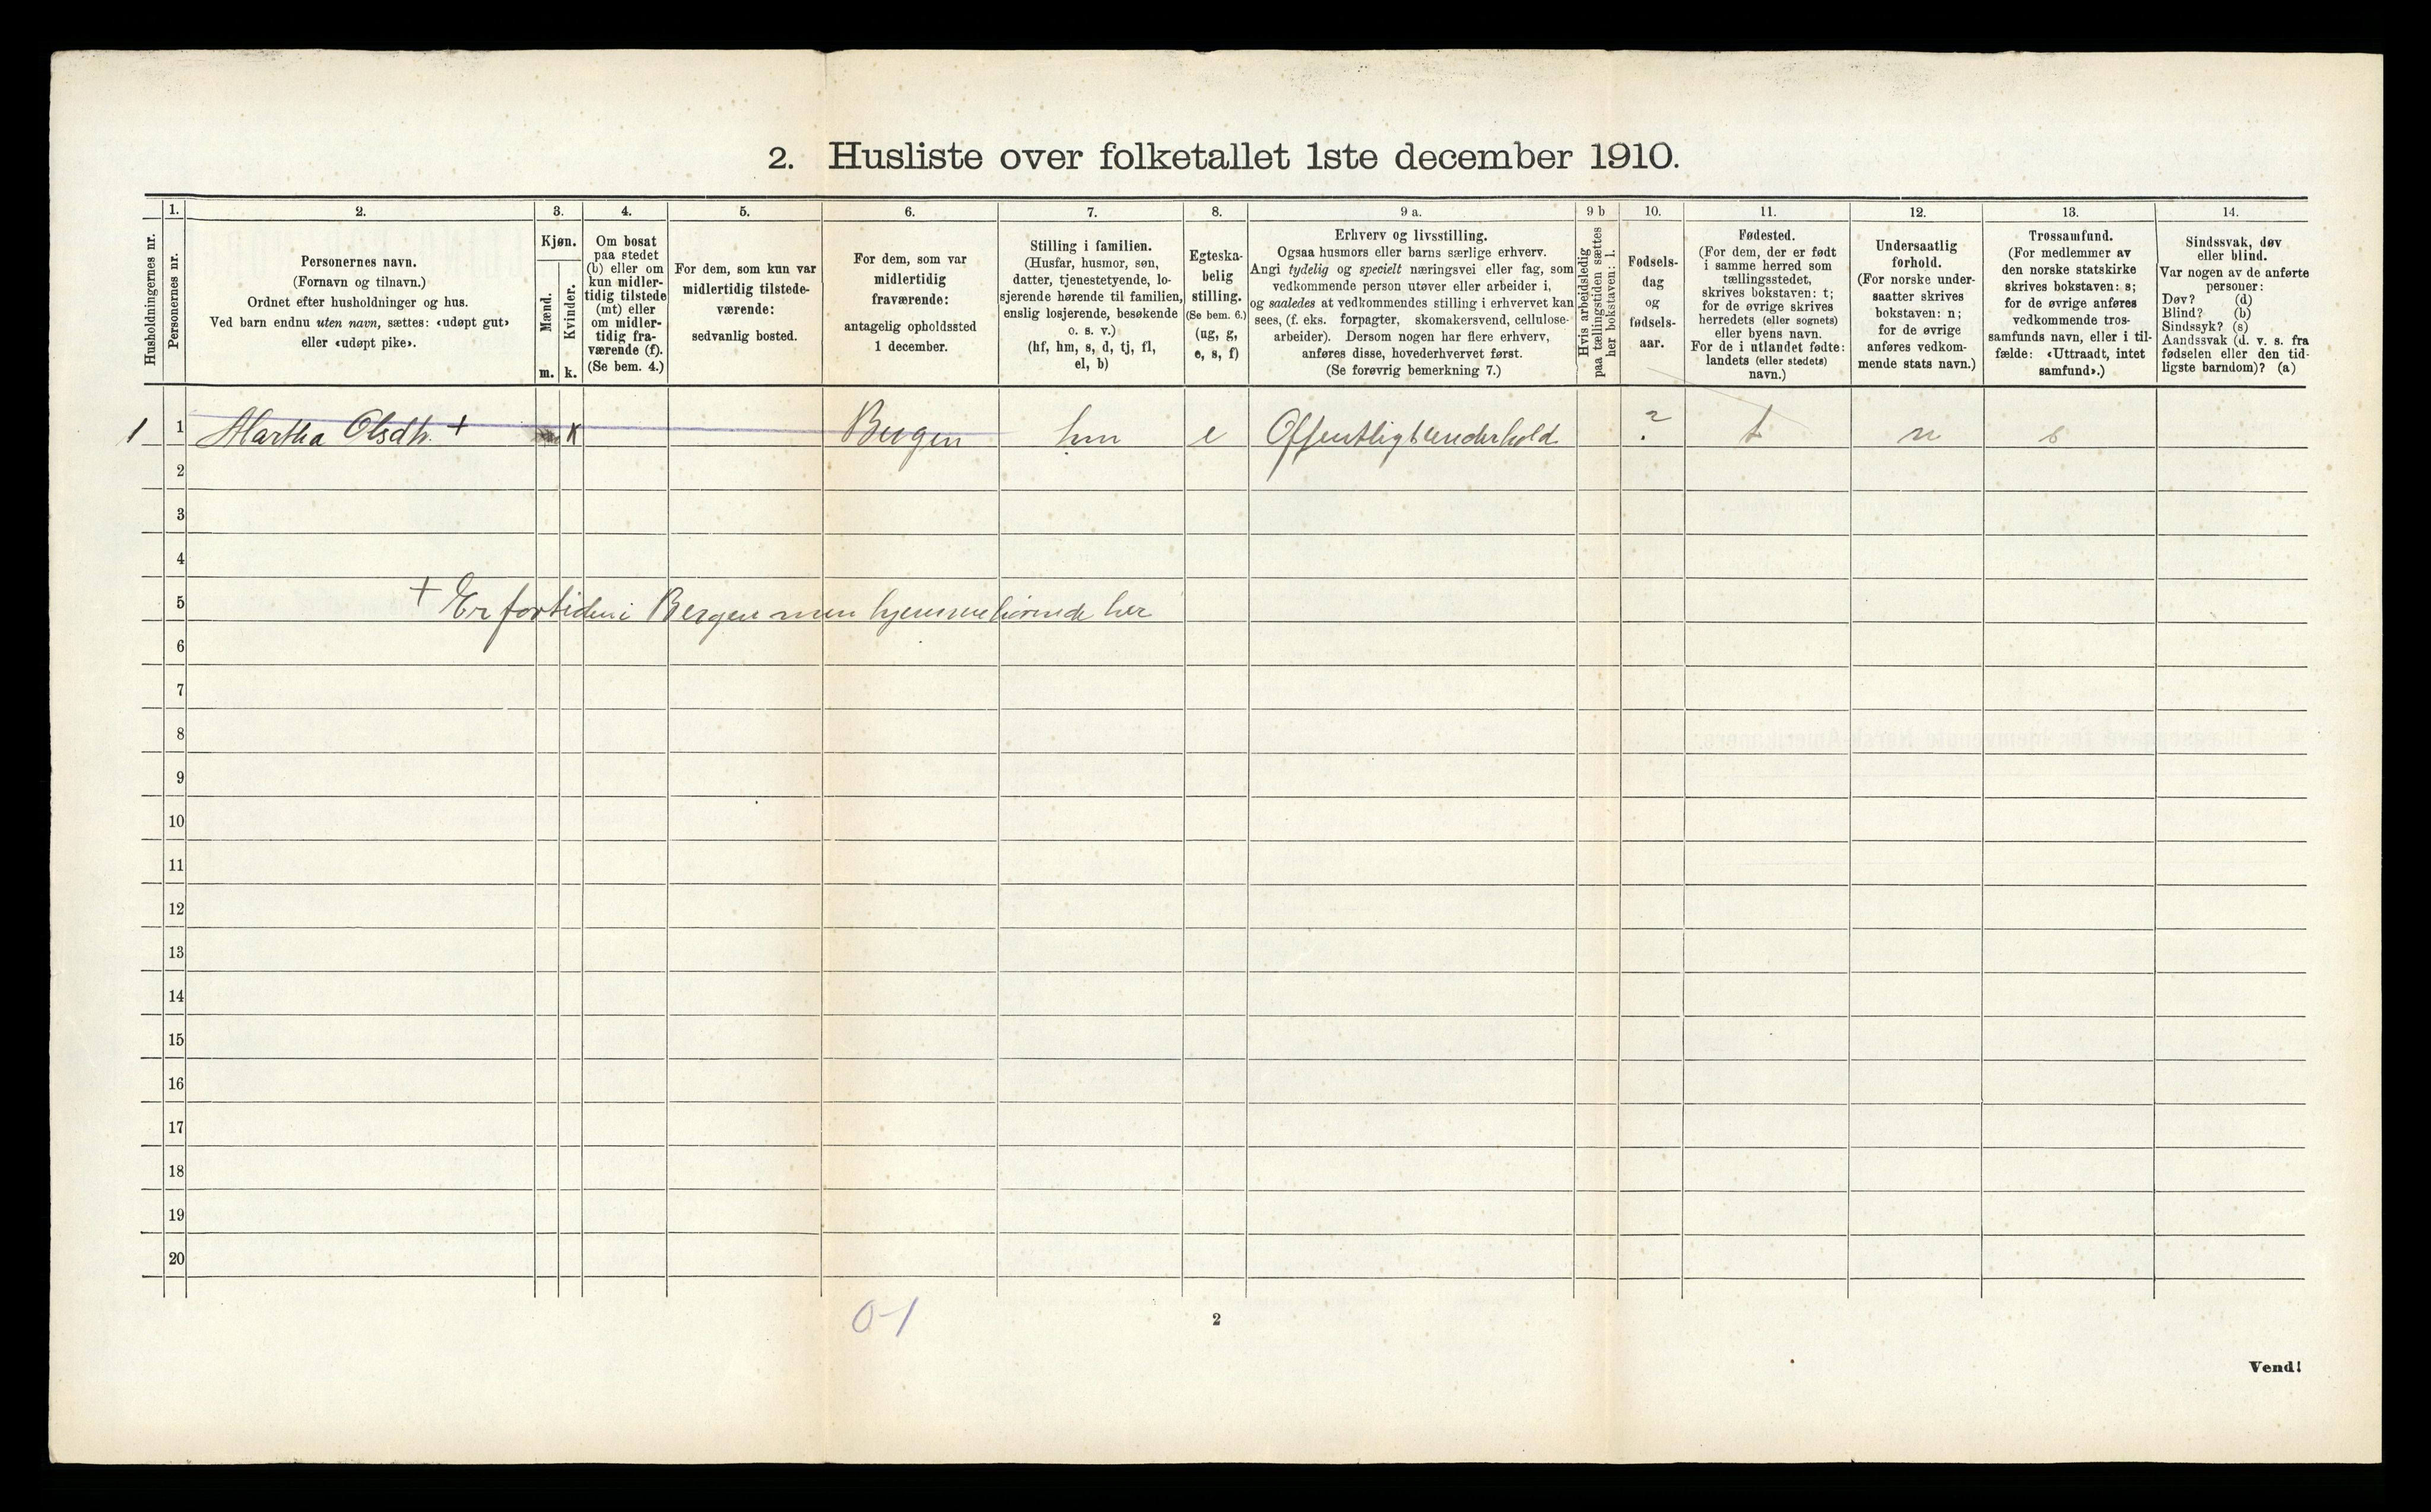 2. Husliste over folketallet 1ste december 1910.
1. 2. 3. 4. 5. 6. 7. 8. 9 a. 9 b 10. 11. 12. 13. 14.
Husholdningernes nr.
Personernes nr.
Personernes navn.
(Fornavn og tilnavn.)
Ordnet efter husholdninger og hus.
Ved barn endnu uten navn, sættes: «udøpt gut»
eller «udøpt pike».
Kjøn.
Mænd.
Kvinder.
m. k.
Om bosat
paa stedet
(b) eller om
kun midler-
tidig tilstede
(mt) eller
om midler-
tidig fra-
værende (f).
(Se bem. 4.)
For dem, som kun var
midlertidig tilstede-
værende:
sedvanlig bosted.
For dem, som var
midlertidig
fraværende:
antagelig opholdssted
1 december.
Stilling i familien.
(Husfar, husmor, søn,
datter, tjenestetyende, lo-
sjerende hørende til familien,
enslig losjerende, besøkende
o. s. v.)
(hf, hm, s, d, tj, fl,
el, b)
Egteska-
belig
stilling.
(Se bem. 6.)
(ug, g,
e, s, f)
Erhverv og livsstilling.
Ogsaa husmors eller barns særlige erhverv.
Angi tydelig og specielt næringsvei eller fag, som
vedkommende person utøver eller arbeider i,
og saaledes at vedkommendes stilling i erhvervet kan
sees, (f. eks. forpagter, skomakersvend, cellulose-
arbeider). Dersom nogen har flere erhverv,
anføres disse, hovederhvervet først.
(Se forøvrig bemerkning 7.)
Hvis arbeidsledig
paa tællingstiden sættes
her bokstaven: l.
Fødsels-
dag
og
fødsels-
aar.
Fødested.
(For dem, der er født
i samme herred som
tællingsstedet,
skrives bokstaven: t;
for de øvrige skrives
herredets (eller sognets)
eller byens navn.
For de i utlandet fødte:
landets (eller stedets)
navn.)
Undersaatlig
forhold.
(For norske under-
saatter skrives
bokstaven: n;
for de øvrige
anføres vedkom-
mende stats navn.)
Trossamfund.
(For medlemmer av
den norske statskirke
skrives bokstaven: s;
for de øvrige anføres
vedkommende tros-
samfunds navn, eller i til-
fælde: «Uttraadt, intet
samfund».)
Sindssvak, døv
eller blind.
Var nogen av de anførte
personer:
Døv? (d)
Blind? (b)
Sindssyk? (s)
Aandssvak (d. v. s. fra
fødselen eller den tid-
ligste barndom)? (a)
1 1 Martha Olsdtr. + k Bergen hm e Offentligt underhold ? t n s
2
3
4
5 + Er fortiden i Bergen men hjemmehørende her
6
7
8
9
10
11
12
13
14
15
16
17
18
19
20
0-1
2
Vend!